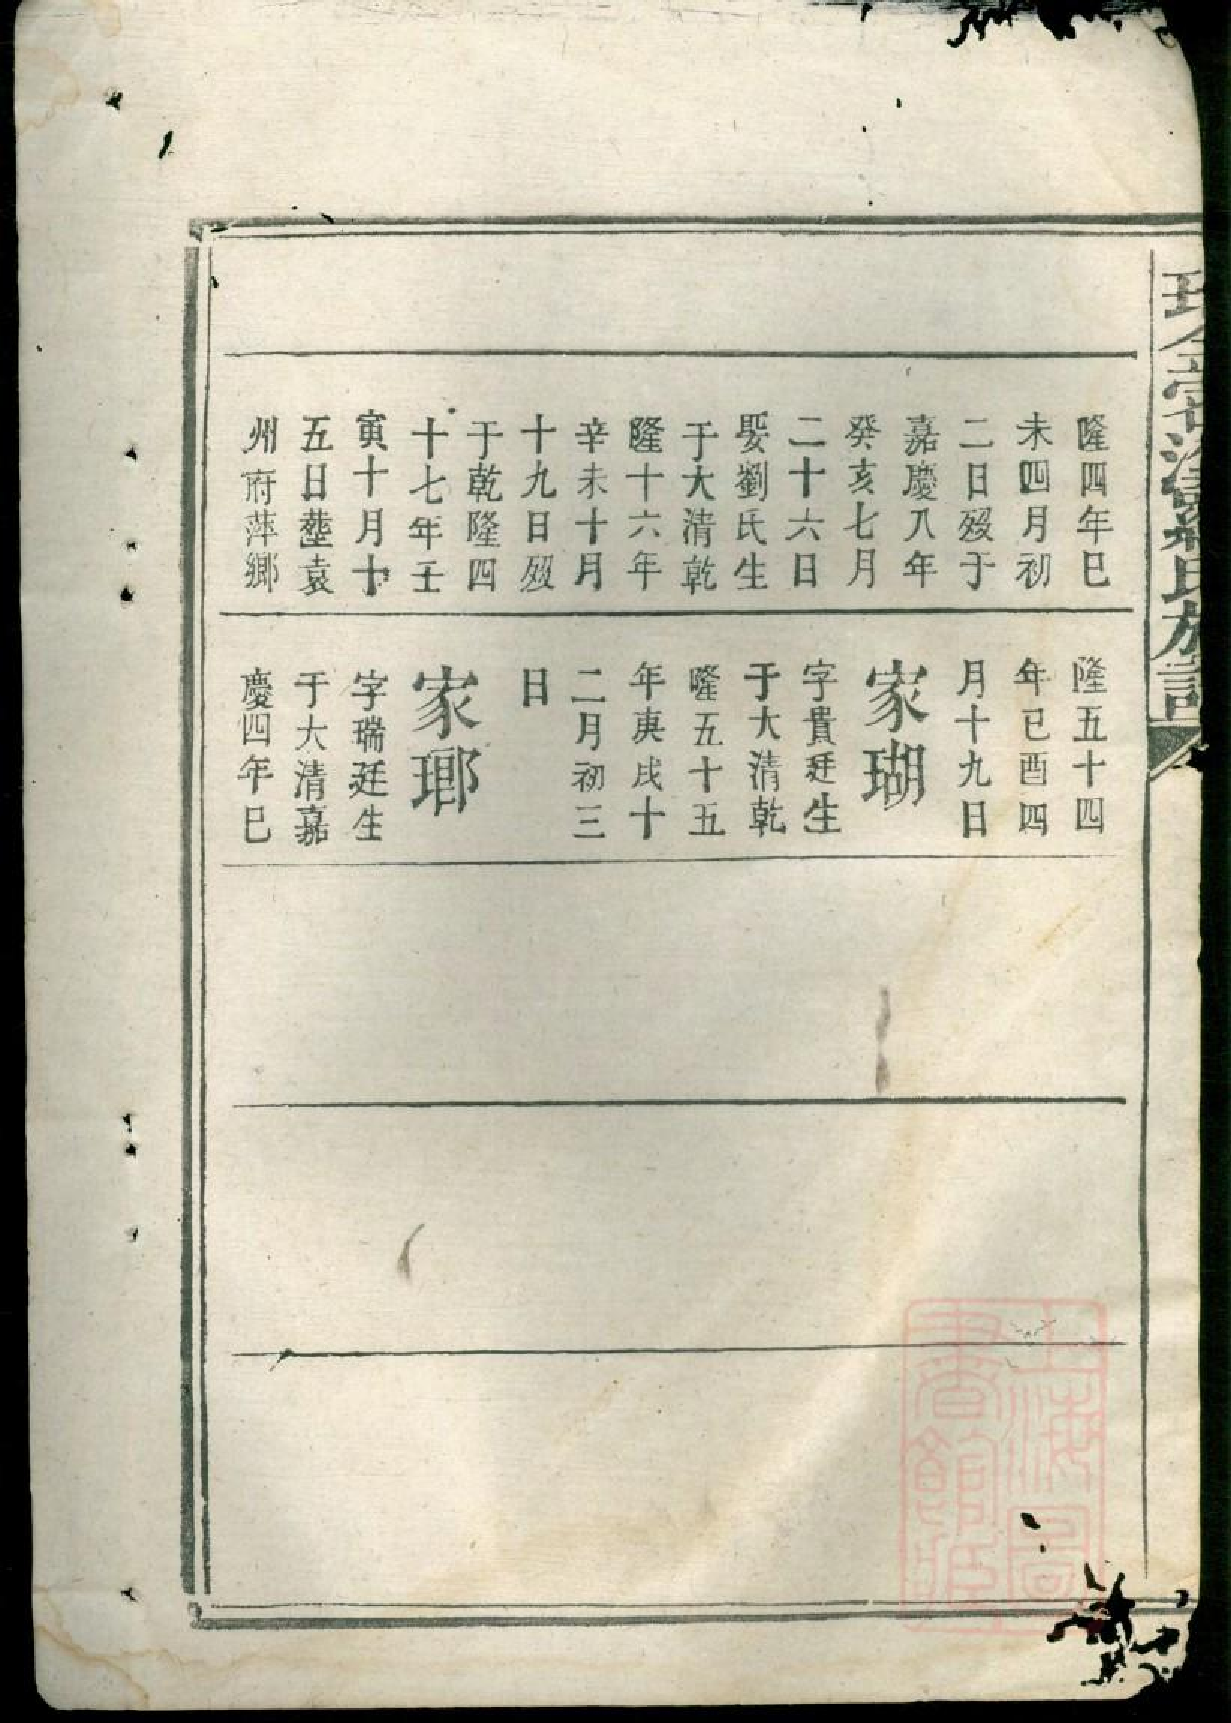 隆四年巳
未四月初
二日殁于
嘉慶八年
癸亥七月
二十六日
娶劉氏生
于大清乾
隆十六年
辛未十月
十九日殁
于乾隆四
十七年壬
寅十月十
五日塟袁
州府萍鄉
隆五十四
年已酉四
月十九日
家瑚
字貴廷生
于大清乾
隆五十五
年庚戌十
二月初三
日
家瑯
字瑞廷生
于大清嘉
慶四年巳
氏族譜
上海圖
書館藏